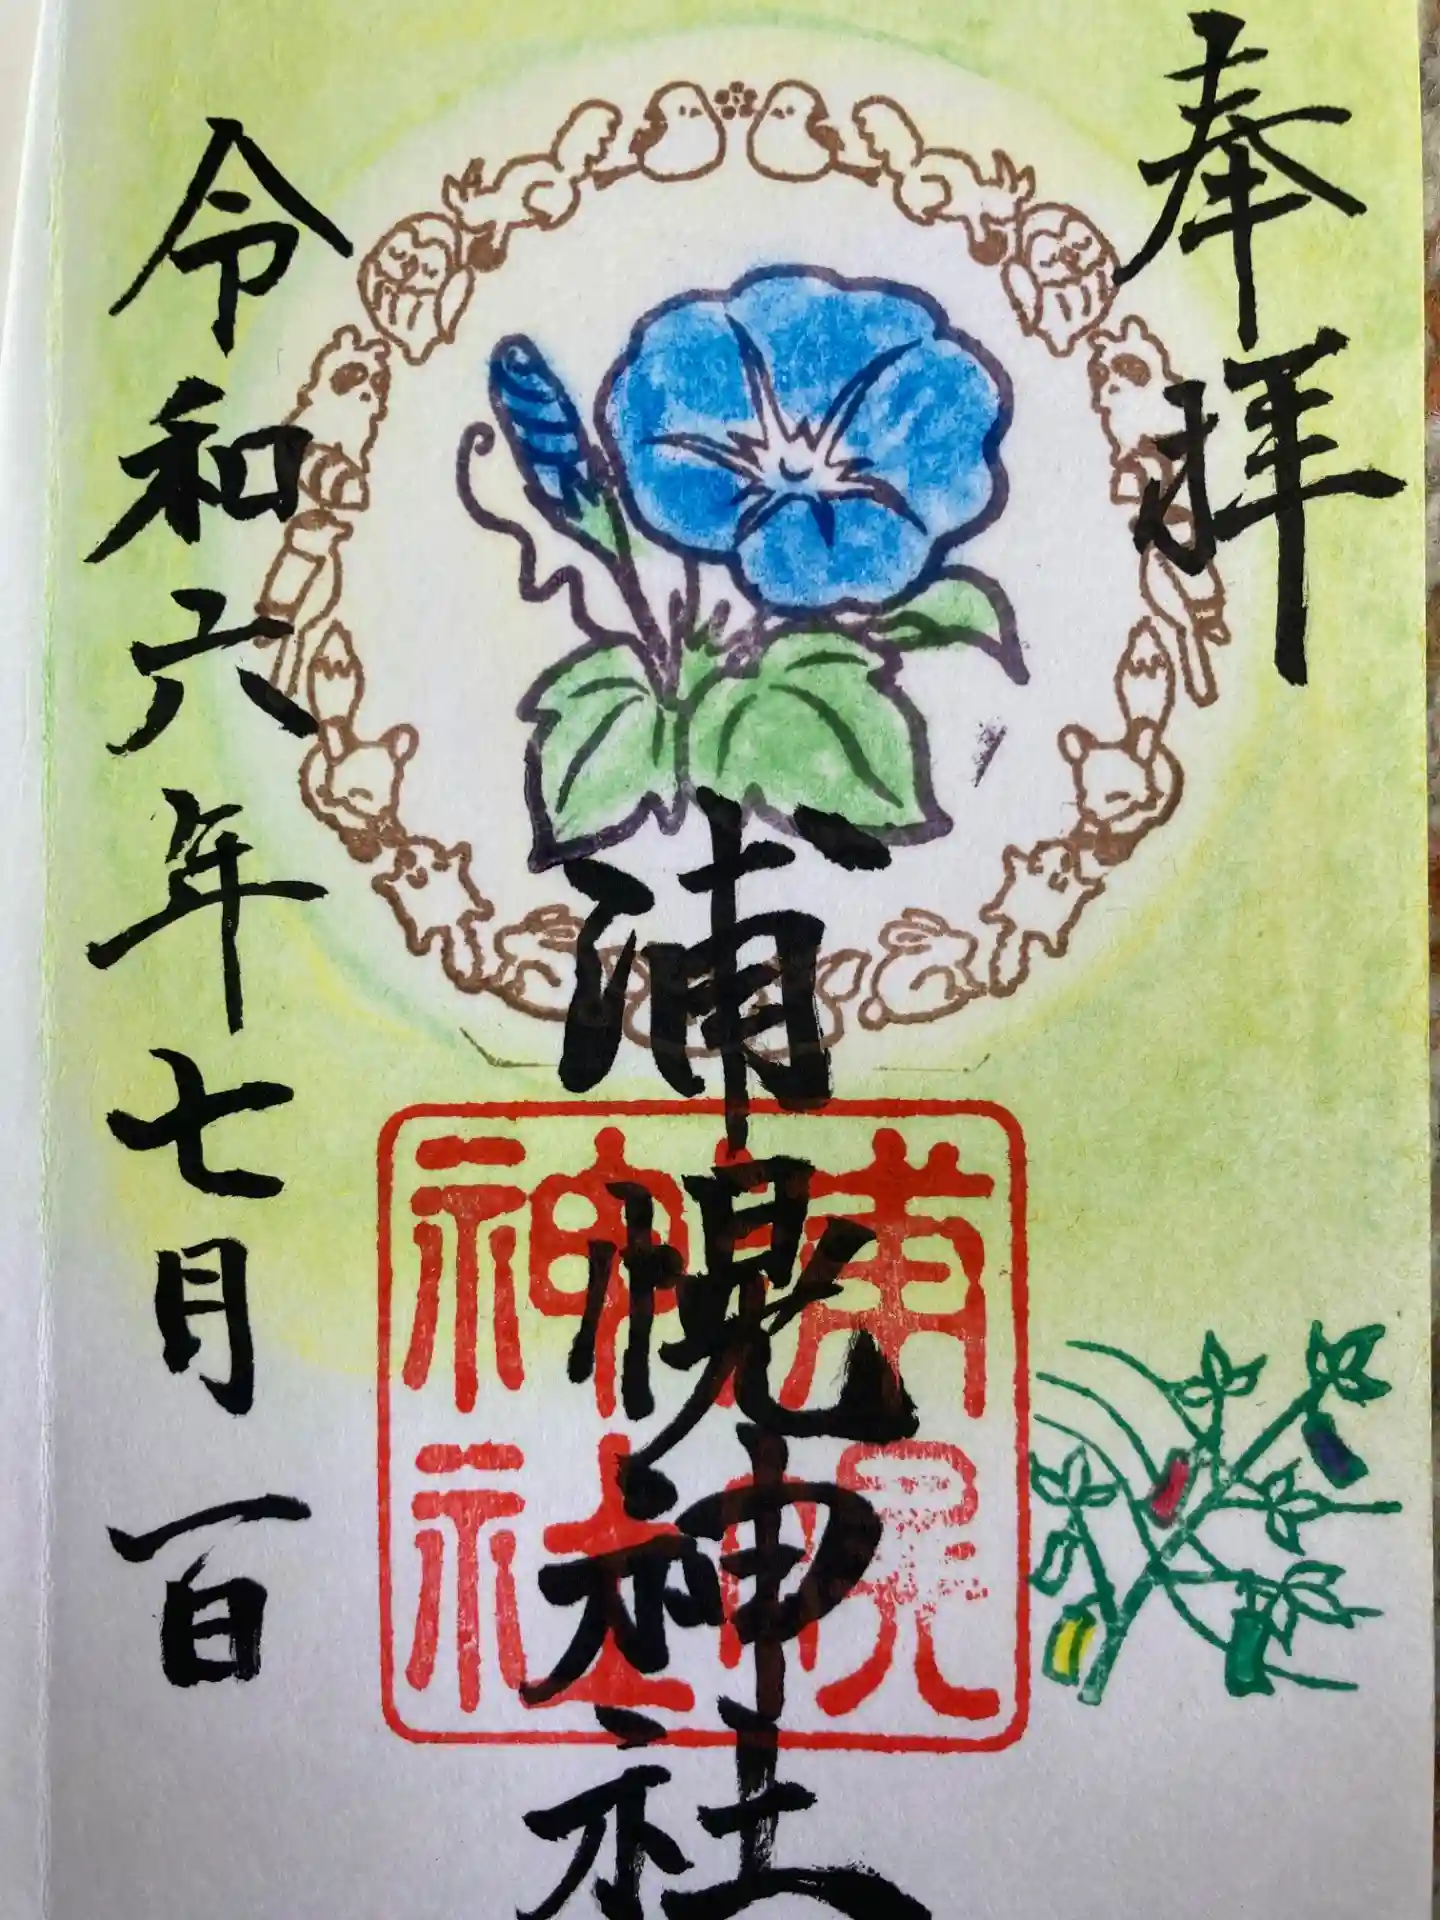 奉拝
浦幌神社
浦幌
神社
令和六年七月一日